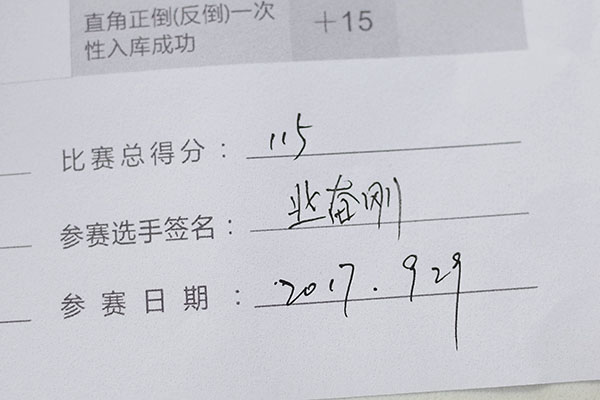 直角正倒(反倒)一次 +15
性入库成功
比赛总得分: 115
参赛选手签名: 奋刚
参赛日期: 2017.9 29